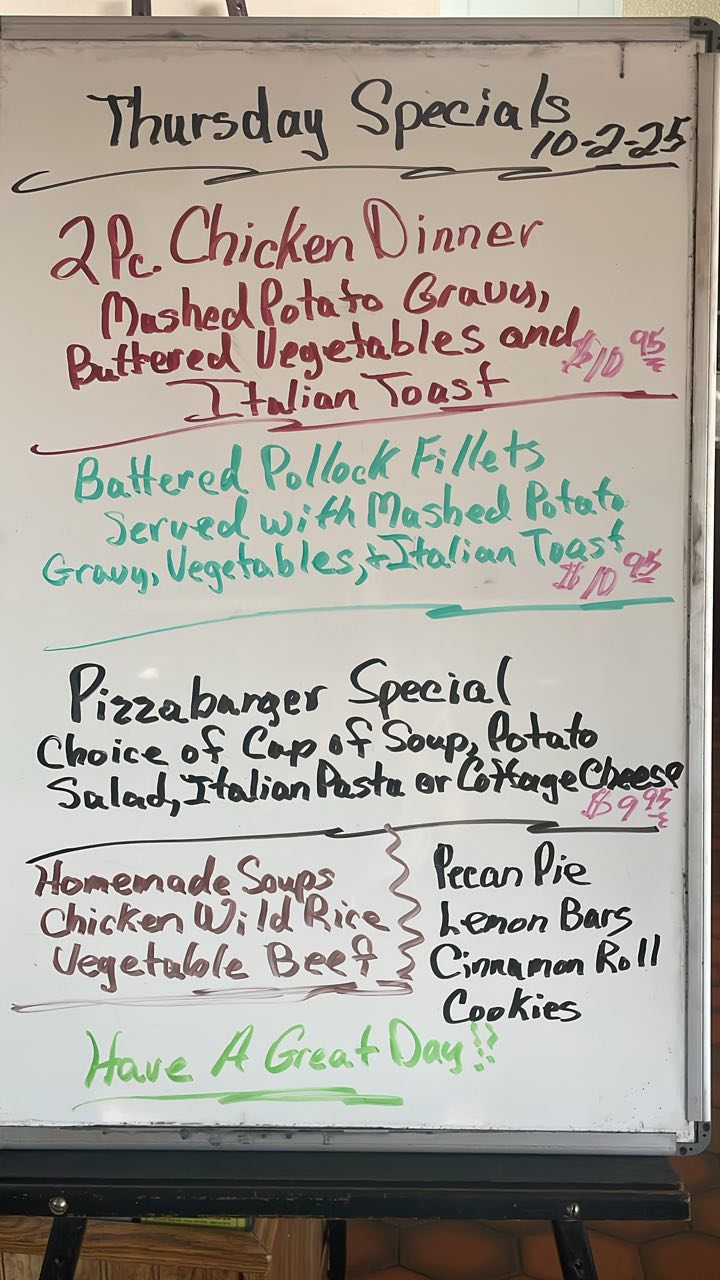 Thursday Specials
10-2-25
2 Pc. Chicken Dinner
Mashed Potato Gravy,
Buttered Vegetables and
Italian Toast $10 95
Battered Pollock Fillets
Served with Mashed Potato
Gravy, Vegetables, + Italian Toast
$10 95
Pizzaburger Special
Choice of Cup of Soup, Potato
Salad, Italian Pasta or Cottage Cheese
$9 95
Homemade Soups
Chicken Wild Rice
Vegetable Beef
Pecan Pie
Lemon Bars
Cinnamon Roll
Cookies
Have A Great Day!!